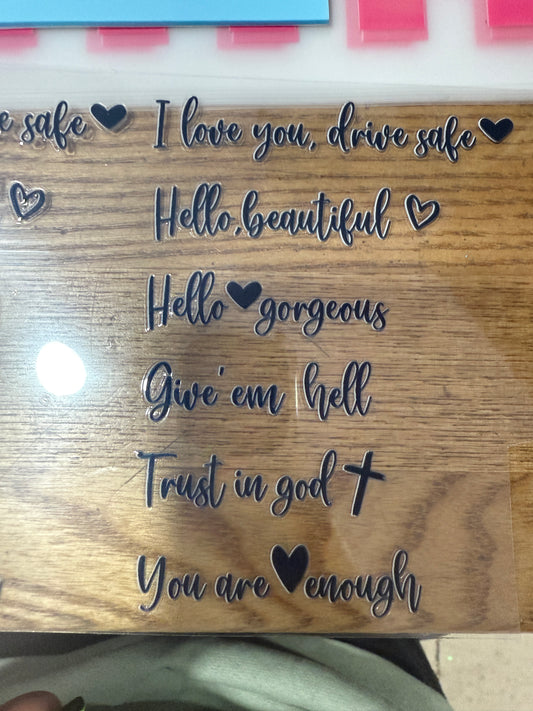 e safe I love you, drive safe
Hello, beautiful
Hello gorgeous
Give 'em hell
Trust in god
You are enough